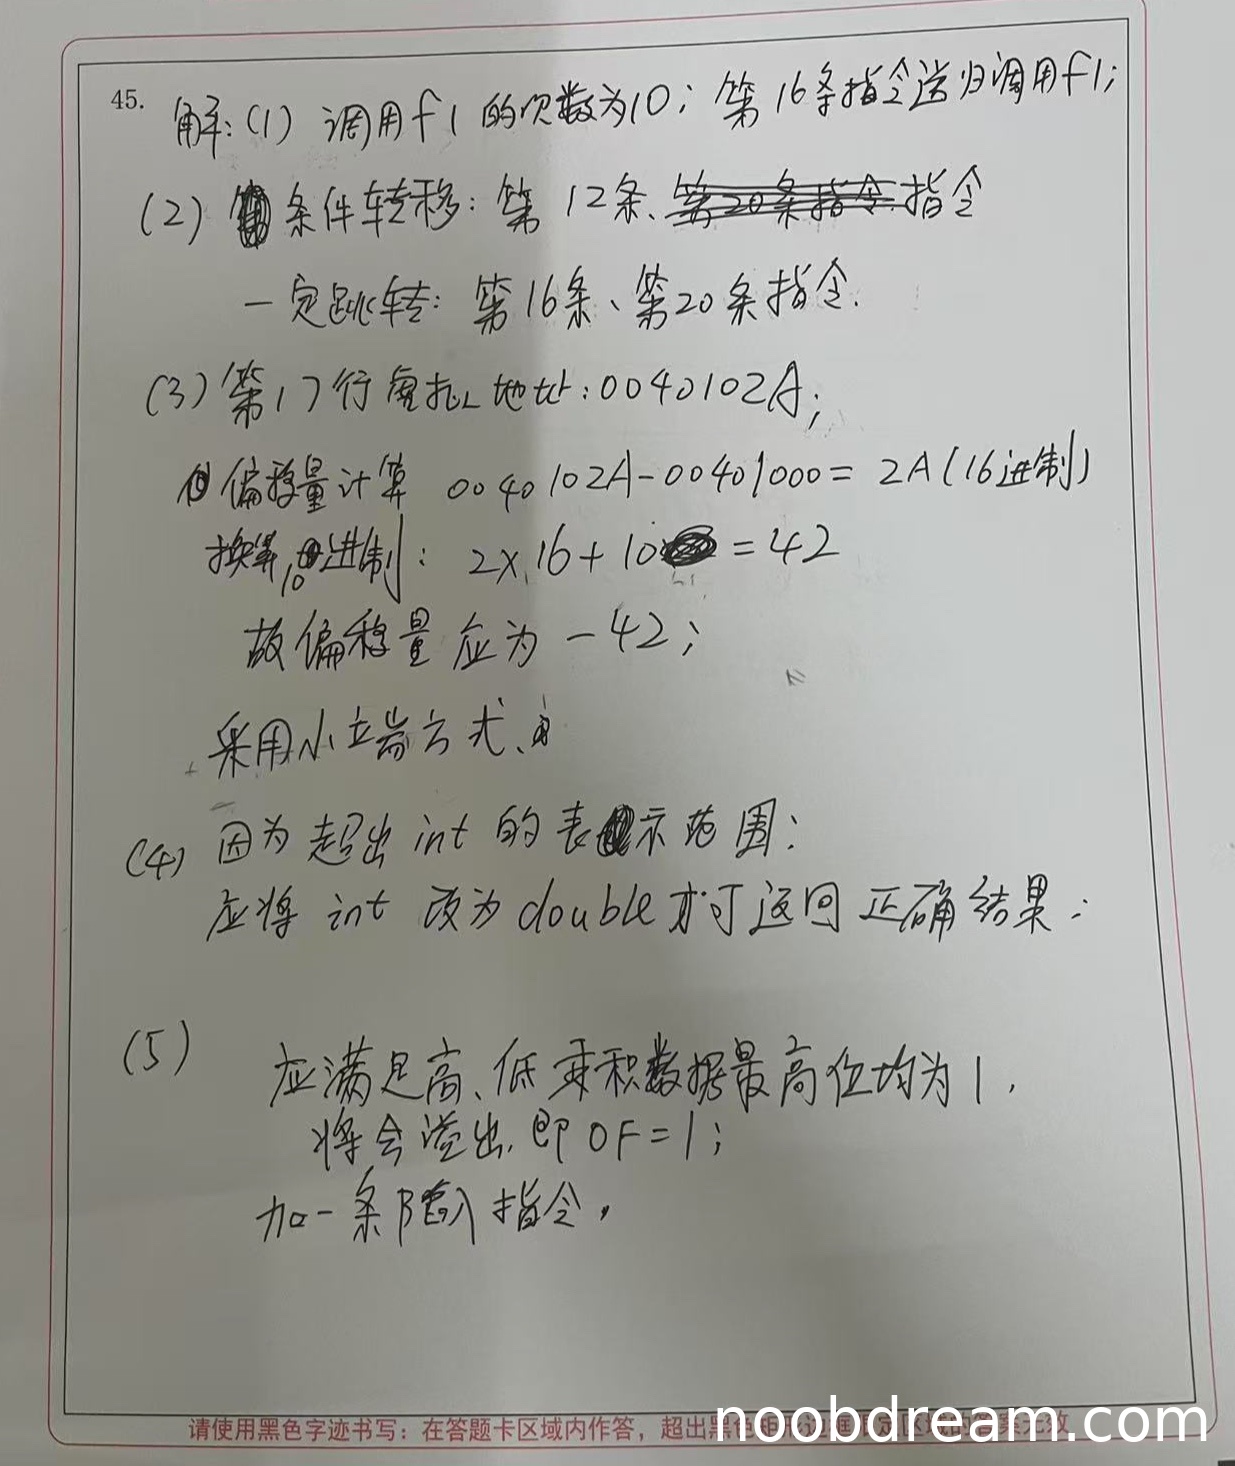 45. 解:(1) 调用f1的次数为10; 第16条指令递归调用f1;
(2) 条件转移: 第12条、指令
一定跳转: 第16条、第20条指令.
(3) 第17行虚拟地址:0040102A;
偏移量计算 0040102A-00401000= 2A(16进制)
换算10进制: 2×16+10=42
故偏移量应为-42;
采用小端方式、
(4) 因为超出int的表示范围;
应将 int 改为double才可返回正确结果;
(5) 应满足高、低乘积数据最高位均为1.
将会溢出.即OF=1;
加一条 指令.
请使用黑色字迹书写:在答题卡区域内作答,超出黑色
noobdream.com